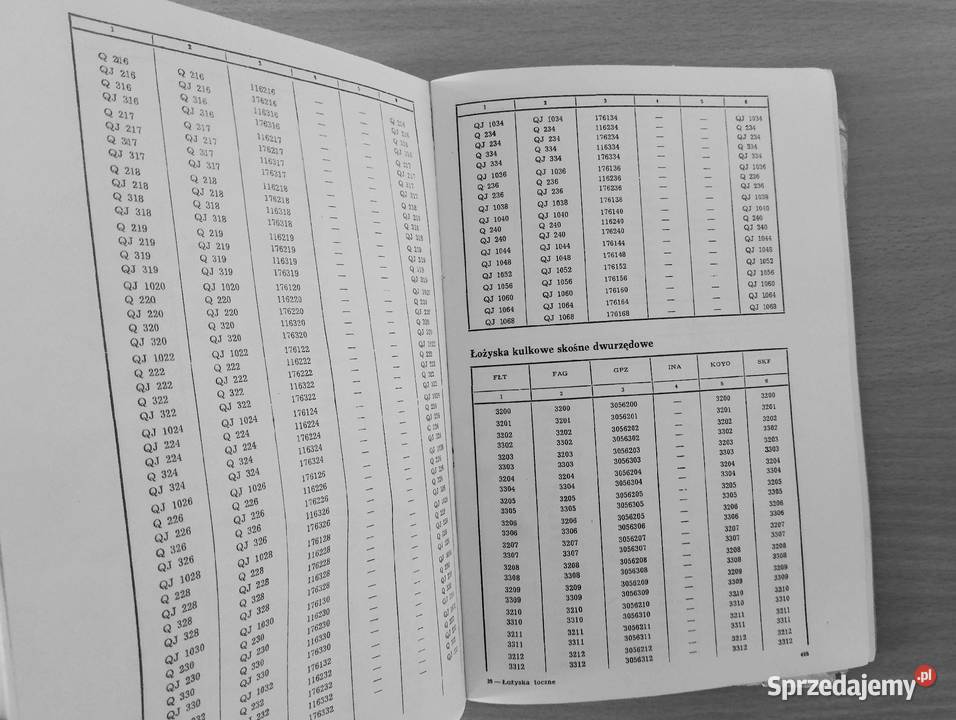 1 2 3 4 5 6
Q 216 Q 216 116216 — — Q 216
QJ 216 QJ 216 176216 — — QJ 216
Q 316 Q 316 116316 — — Q 316
QJ 316 QJ 316 176316 — — QJ 316
Q 217 Q 217 116217 — — Q 217
QJ 217 QJ 217 176217 — — QJ 217
Q 317 Q 317 116317 — — Q 317
QJ 317 QJ 317 176317 — — QJ 317
Q 218 Q 218 116218 — — Q 218
QJ 218 QJ 218 176218 — — QJ 218
Q 318 Q 318 116318 — — Q 318
QJ 318 QJ 318 176318 — — QJ 318
Q 219 Q 219 116219 — — Q 219
QJ 219 QJ 219 176219 — — QJ 219
Q 319 Q 319 116319 — — Q 319
QJ 319 QJ 319 176319 — — QJ 319
QJ 1020 QJ 1020 176120 — —
Q 220 Q 220 116220 — — Q 220
QJ 220 QJ 220 176220 — —
Q 320 Q 320 116320 — — Q 320
QJ 320 QJ 320 176320 — — QJ 320
QJ 1022 QJ 1022 176122 — —
Q 222 Q 222 116222 — — Q 222
QJ 222 QJ 222 176222 — — QJ 222
Q 322 Q 322 116322 — — Q 322
QJ 322 QJ 322 176322 — — QJ 322
QJ 1024 QJ 1024 176124 — —
QJ 224 Q 224 116224 — —
QJ 224 QJ 224 176224 — —
Q 324 Q 324 116324 — —
QJ 324 QJ 324 176324 — —
QJ 1026 QJ 1026 176126 — —
Q 226 QJ 226 116226 — —
QJ 226 Q 326 116326 — —
Q 326 QJ 326 176326 — —
QJ 326 QJ 1028 176128 — —
QJ 1028 Q 228 116228 — —
QJ 228 QJ 228 116328 — —
Q 328 Q 328 176328 — —
QJ 328 QJ 328 176130 — —
QJ 1030 QJ 1030 116230 — —
QJ 230 Q 230 116330 — —
Q 230 QJ 230 176330 — —
Q 330 Q 330 176132 — —
QJ 330 QJ 1032 116232 — —
Q 232 116332
232 176332
1 2 3 4 5 6
QJ 1034 QJ 1034 176134 — — QJ 1034
Q 234 Q 234 116234 — — Q 234
QJ 234 QJ 234 176234 — — QJ 234
Q 334 Q 334 116334 — — Q 334
QJ 334 QJ 334 176334 — — QJ 334
QJ 1036 QJ 1036 176136 — — QJ 1036
Q 236 Q 236 116236 — — Q 236
QJ 236 QJ 236 176236 — — QJ 236
QJ 1038 QJ 1038 176138 — — QJ 1038
QJ 1040 QJ 1040 176140 — — QJ 1040
Q 240 Q 240 116240 — — Q 240
QJ 240 QJ 240 176240 — — QJ 240
QJ 1044 QJ 1044 176144 — — QJ 1044
QJ 1048 QJ 1048 176148 — — QJ 1048
QJ 1052 QJ 1052 176152 — — QJ 1052
QJ 1056 QJ 1056 176156 — — QJ 1056
QJ 1060 QJ 1060 176160 — — QJ 1060
QJ 1064 QJ 1064 176164 — — QJ 1064
QJ 1068 QJ 1068 176168 — — QJ 1068
Łożyska kulkowe skośne dwurzędowe
FŁT FAG GPZ INA KOYO SKF
1 2 3 4 5 6
3200 3200 3056200 — 3200 3200
3201 3201 3056201 — 3201 3201
3202 3202 3056202 — 3202 3202
3302 3302 3056302 — 3302 3302
3203 3203 3056203 — 3203 3203
3303 3303 3056303 — 3303 3303
3204 3204 3056204 — 3204 3204
3304 3304 3056304 — 3304 3304
3205 3205 3056205 — 3205 3205
3305 3305 3056305 — 3305 3305
3206 3206 3056205 — 3206 3206
3306 3306 3056306 — 3306 3306
3207 3207 3056207 — 3207 3207
3307 3307 3056307 — 3307 3307
3208 3208 3056208 — 3208 3208
3308 3308 3056308 — 3308 3308
3209 3209 3056209 — 3209 3209
3309 3309 3056309 — 3309 3309
3210 3210 3056210 — 3210 3210
3310 3310 3056310 — 3310 3310
3211 3211 3056211 — 3211 3211
3311 3311 3056311 — 3311 3311
3212 3212 3056212 — 3212 3212
3312 3312 3056312 — 3312 3312
— Łożyska toczne
Sprzedajemy.pl